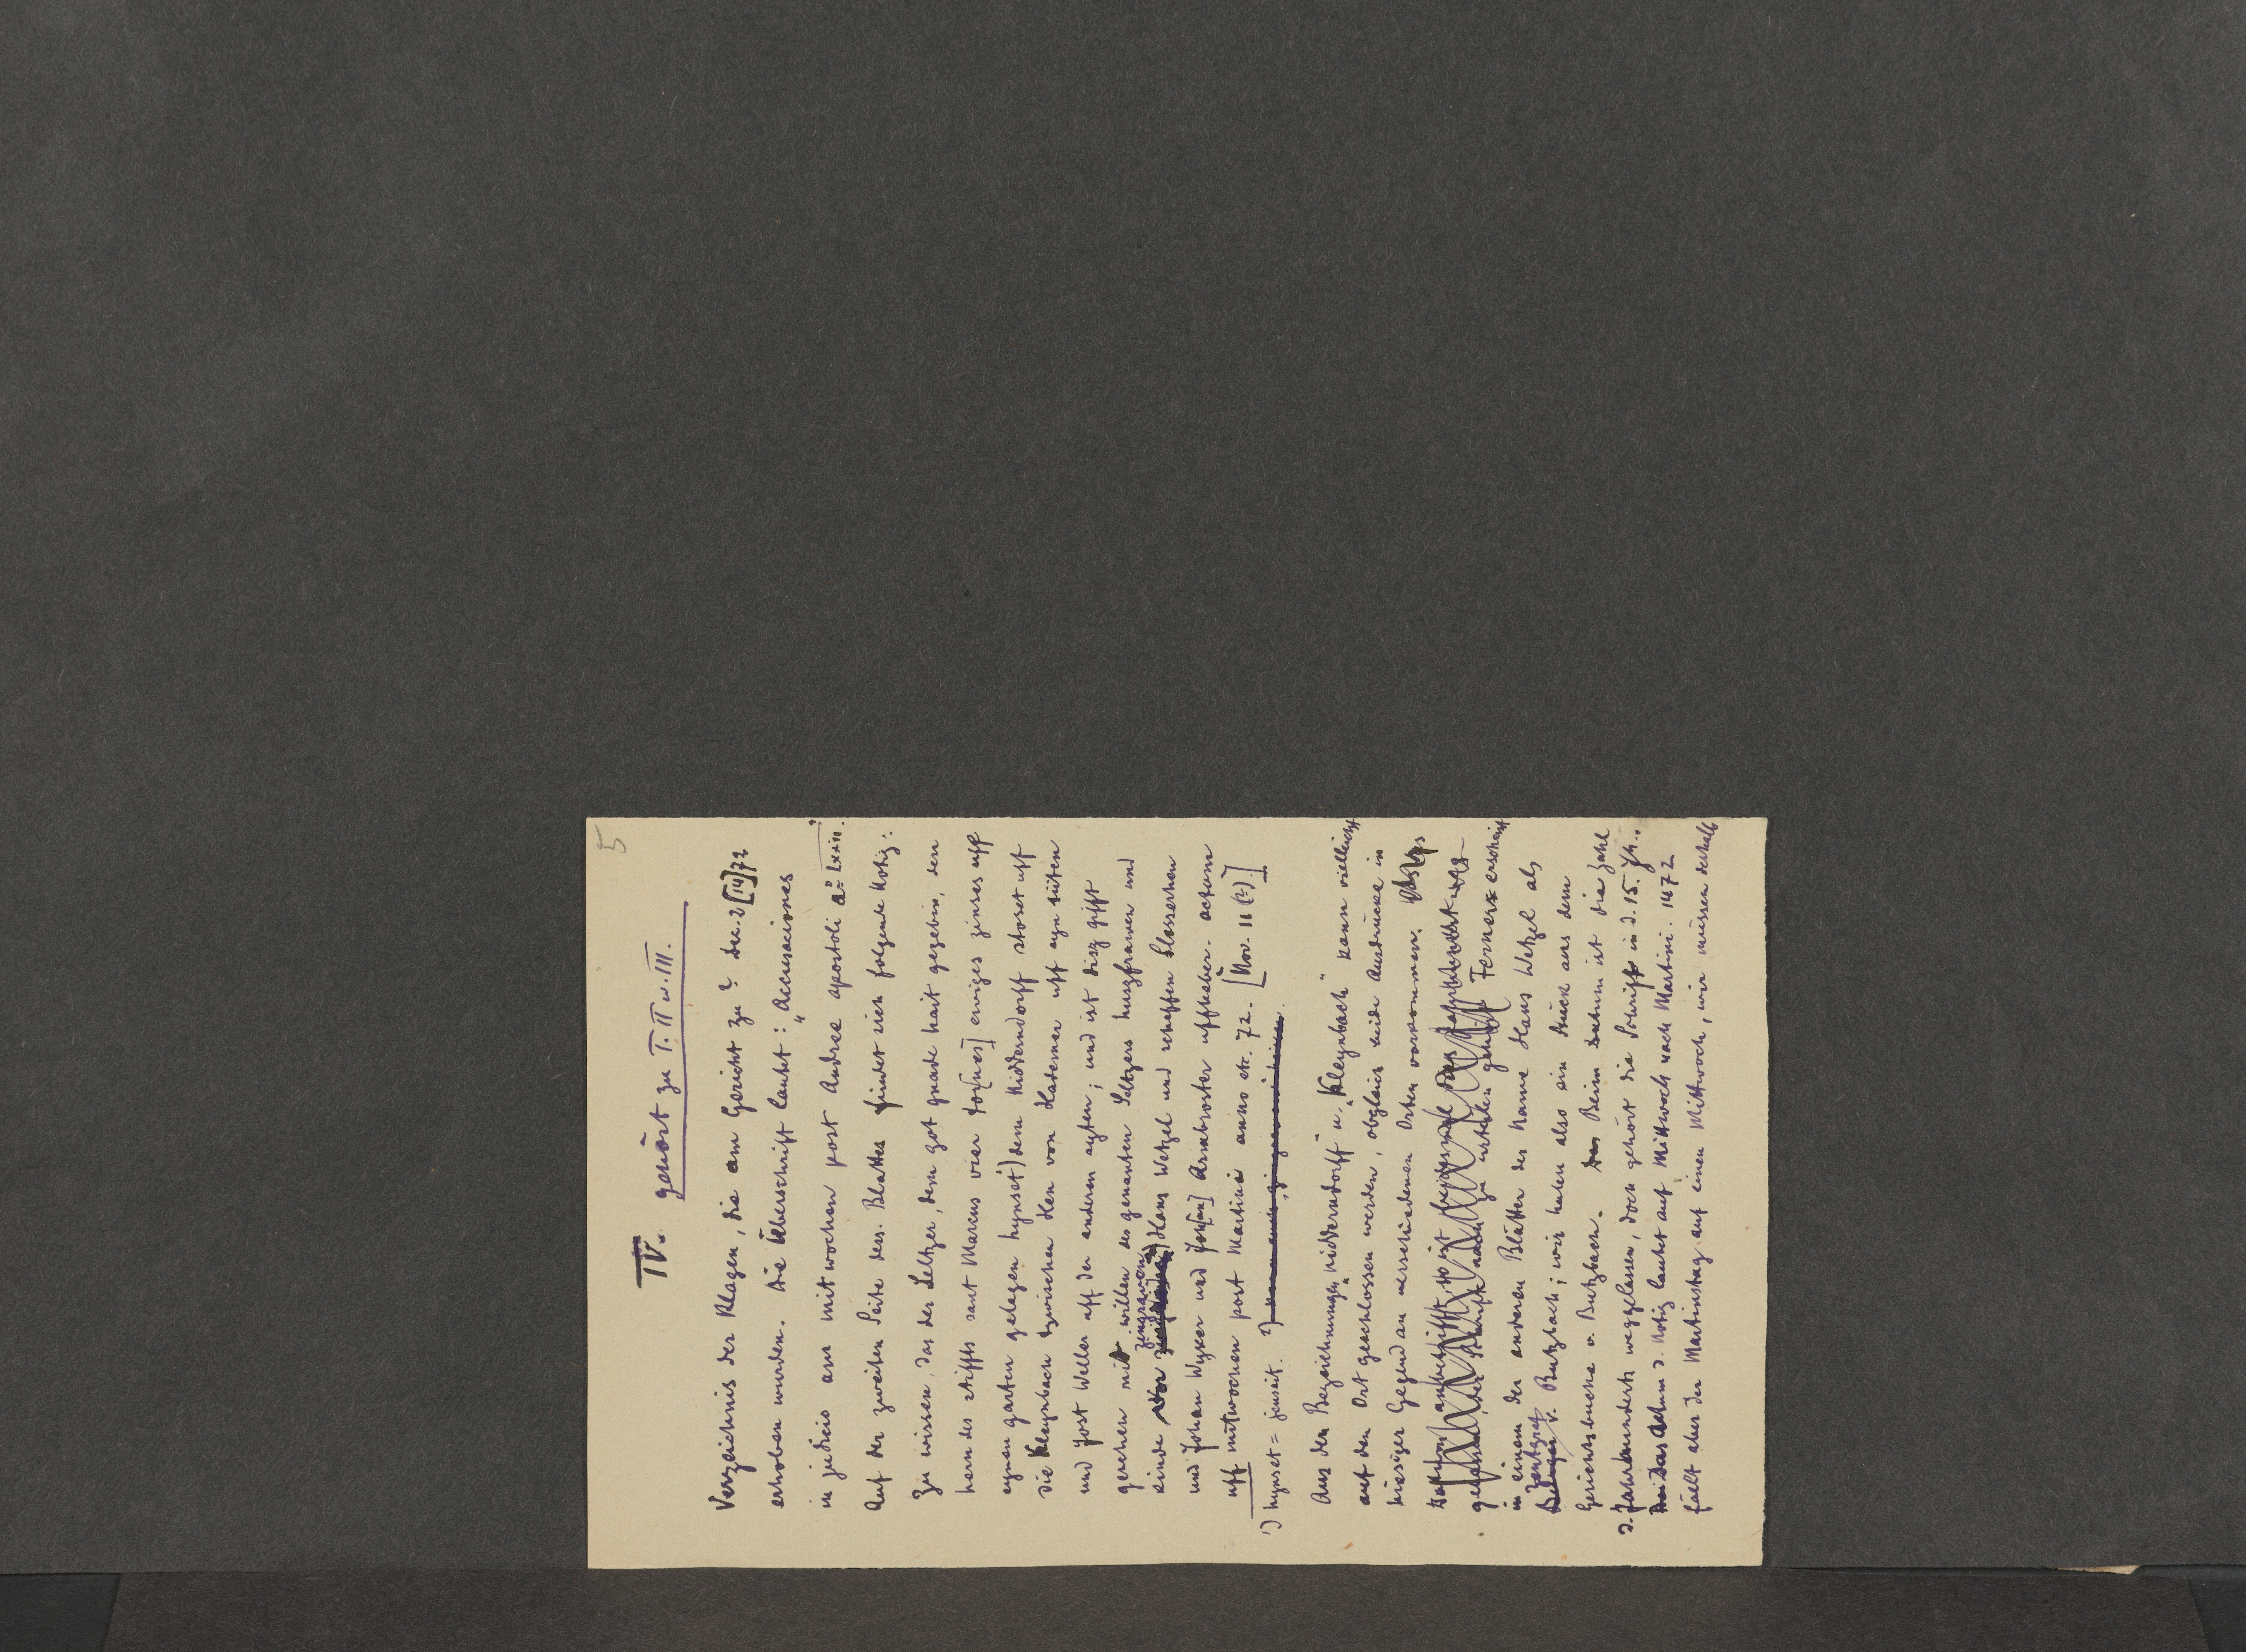 5
IV. gehört zu I. II u. III.
Verzeichnis der Klagen, die am Gericht zu ? Dec. 2 [14]72
erhoben wurden. Die Überschrift lautet: „Accusaciones
in judicio am mitwochen post Andree apostoli a° lxxii.“
Auf der zweiten Seite dess. Blattes findet sich folgende Notiz:
Zu wissen, das der Seltzer, dem got gnade hait gegebin, den
hern des stiffts sant Marcus vier tor[nes] ewiges zinses uff
eynen garten gelegen hynset¹) dem Nidderndorff stoset uff
die Kleynbach tzwischen Hen von Haderner uff eyn siiten
und Jost Weller uff der anderen syten; und ist disz gifft
geschehen mit willen des genanten Seltzers huszfrawen und
kinde Vor zingrawen Hans Wetzel und scheffen Slosserhen
und Johan Wyser und Joh[an] Armbroster uffheber. actum
uff mitwochen post Martini anno etc. 72. [Nov. 11 (?).]
¹) hynset = jenseit.
Aus den Bezeichnungen „Nidderndorff“ u. „Kleynbach“ kann vielleicht
auf den Ort geschlossen werden, obgleich beide Ausdrücke in
hiesiger Gegend an verschiedenen Orten vorkommen.
Ferner erscheint
in einem der anderen Blätter der Name Hans Wetzel als
Zentgraf v. Butzbach; wir haben also ein Stück aus dem
Gerichtsbuche v. Butzbach. Beim Datum ist die Zahl
d. Jahrhunderts weggelassen, doch gehört die Schrift in d. 15. Jh..
Das Datum d. Notiz lautet auf Mittwoch nach Martini. 1472
fällt aber der Martinstag auf einen Mittwoch, wir müssen deshalb